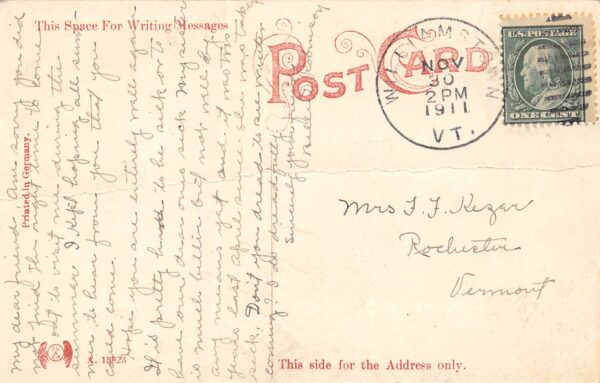 This Space For Writing Messages
POST CARD
WILLIAMSTOWN
NOV
30
2 PM
1911
VT.
U.S. POSTAGE
ONE CENT
My dear friend, Am sorry you did
not find the right time to come
out to visit me during the
summer. I kept hoping all sum-
mer to hear from you that you
could come.
Hope you are entirely well again
It is pretty hard to be sick or to
have our dear ones sick. My sister
is much better but not well by
any means yet and it was two
years last April since she was taken
sick. Don't you dread to see winter
coming? I do dreadfully.
Sincerely yours
Mrs F. F. Kezar
Rochester
Vermont
Printed in Germany.
A. 15823
This side for the Address only.